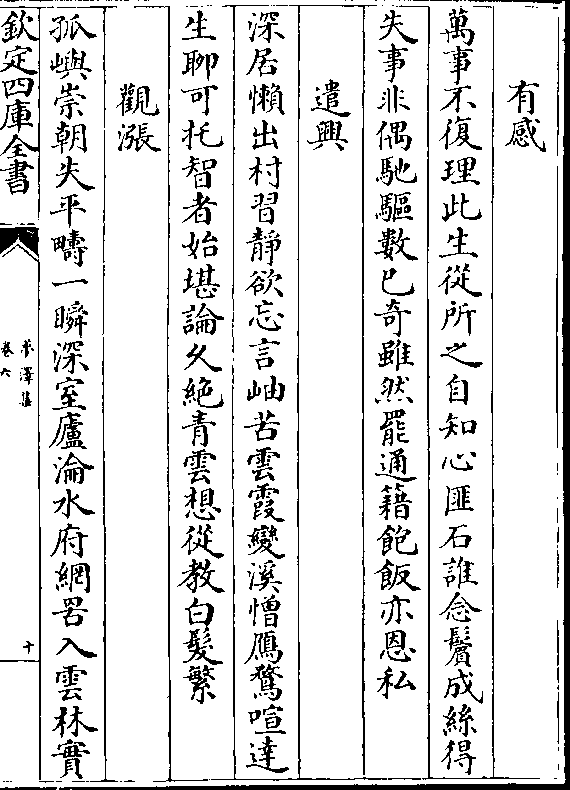 有感
萬事不復理此生從所之自知心匪石誰念鬢成絲得
失事非偶馳驅數已奇雖然罷通籍飽飯亦恩私
遣興
深居懶出村習靜欲忘言岫苦雲霞變溪憎鴈鶩喧達
生聊可托智者始堪論久絶青雲想從教白髮繁
觀漲
孤嶼崇朝失平疇一瞬深室廬淪水府網罟入雲林實
欽定四庫全書
夢澤集
卷六
十